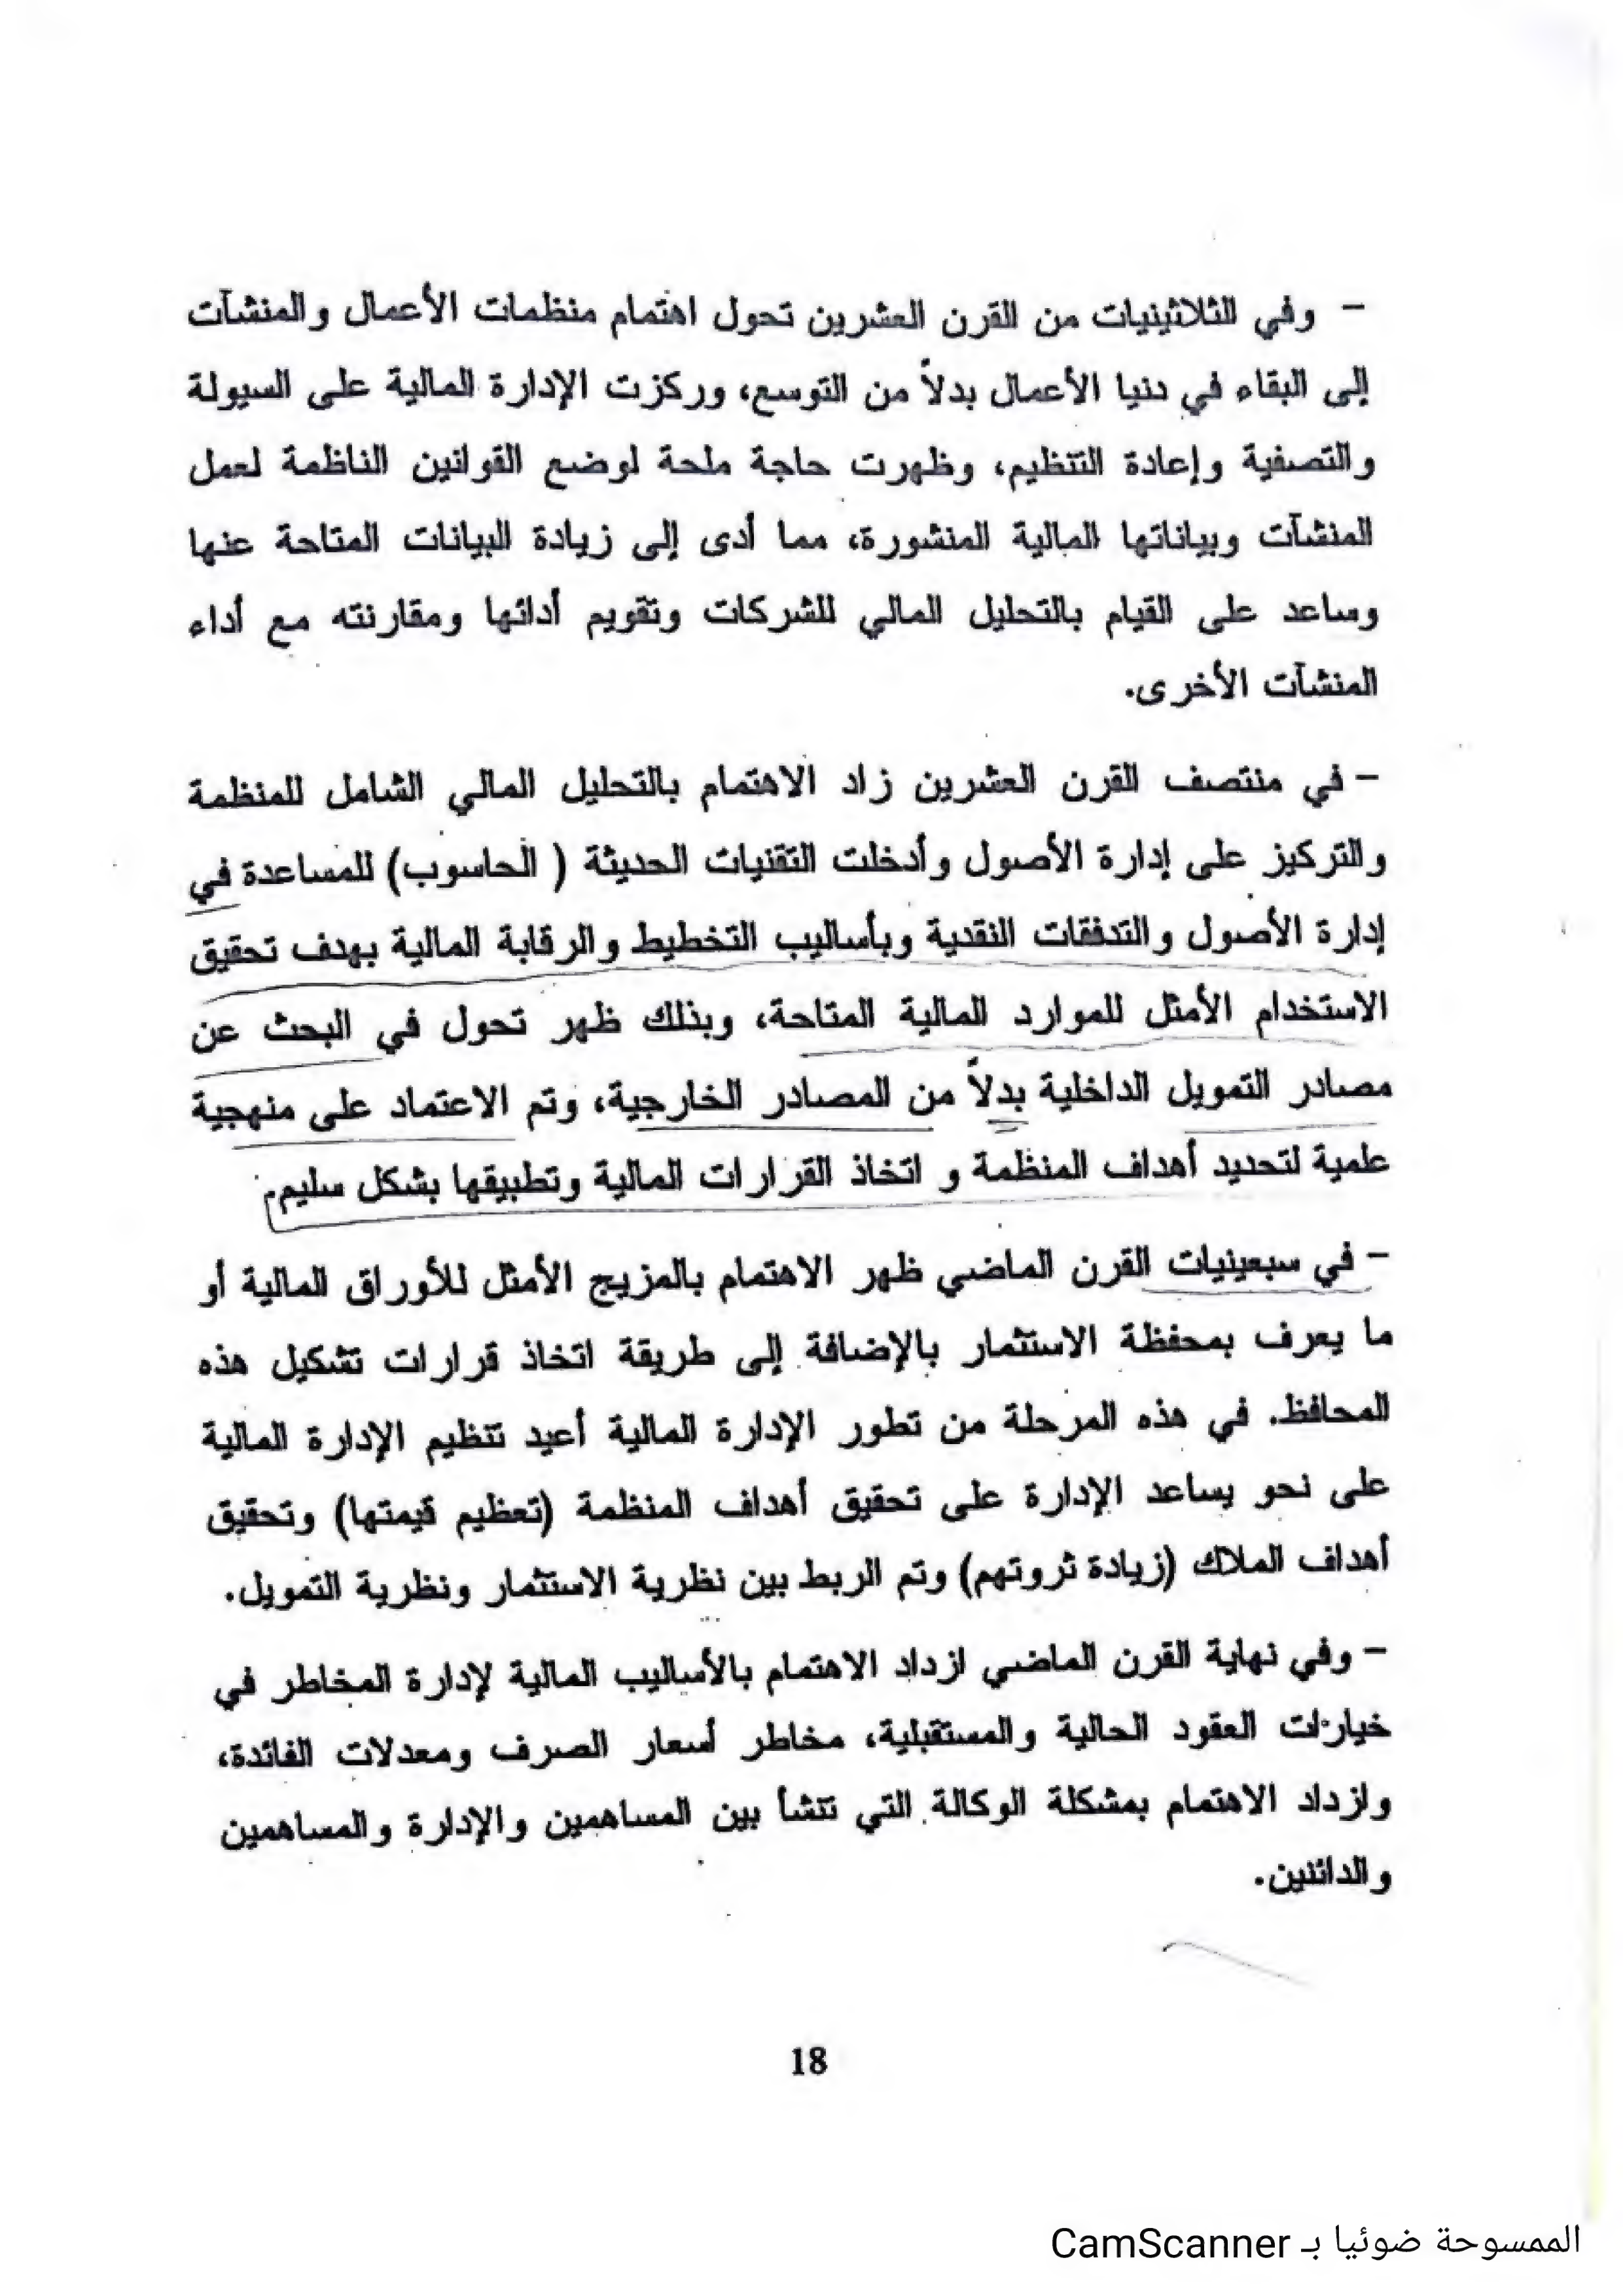 - وفي الثلاثينيات من القرن العشرين تحول اهتمام منظمات الأعمال والمنشآت
إلى البقاء في دنيا الأعمال بدلاً من التوسع، وركزت الإدارة المالية على السيولة
والتصفية وإعادة التنظيم، وظهرت حاجة ملحة لوضع القوانين الناظمة لعمل
المنشآت وبياناتها المالية المنشورة، مما أدى إلى زيادة البيانات المتاحة عنها
وساعد على القيام بالتحليل المالي للشركات وتقويم أدائها ومقارنته مع أداء
المنشآت الأخرى.
- في منتصف القرن العشرين زاد الاهتمام بالتحليل المالي الشامل للمنظمة
والتركيز على إدارة الأصول وأدخلت التقنيات الحديثة ( الحاسوب) للمساعدة في
إدارة الأصول والتدفقات النقدية وبأساليب التخطيط والرقابة المالية بهدف تحقيق
الاستخدام الأمثل للموارد المالية المتاحة، وبذلك ظهر تحول في البحث عن
مصادر التمويل الداخلية بدلاً من المصادر الخارجية، وتم الاعتماد على منهجية
علمية لتحديد أهداف المنظمة و اتخاذ القرارات المالية وتطبيقها بشكل سليم.
- في سبعينيات القرن الماضي ظهر الاهتمام بالمزيج الأمثل للأوراق المالية أو
ما يعرف بمحفظة الاستثمار بالإضافة إلى طريقة اتخاذ قرارات تشكيل هذه
المحافظ. في هذه المرحلة من تطور الإدارة المالية أعيد تنظيم الإدارة المالية
على نحو يساعد الإدارة على تحقيق أهداف المنظمة (تعظيم قيمتها) وتحقيق
أهداف الملاك (زيادة ثروتهم) وتم الربط بين نظرية الاستثمار ونظرية التمويل.
- وفي نهاية القرن الماضي ازداد الاهتمام بالأساليب المالية لإدارة المخاطر في
خيارات العقود الحالية والمستقبلية، مخاطر أسعار الصرف ومعدلات الفائدة،
وازداد الاهتمام بمشكلة الوكالة التي تنشأ بين المساهمين والإدارة والمساهمين
والدائنين.
18
الممسوحة ضوئيا بـ CamScanner